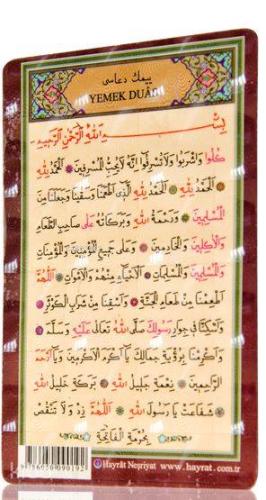 ييمك دعاسى
YEMEK DUÂSI
بِسْمِ اللهِ الرَّحْمٰنِ الرَّحِيمِ
كُلُوا وَاشْرَبُوا وَلَا تُسْرِفُوا اِنَّهُ لَا يُحِبُّ الْمُسْرِفِينَ ۞ اَلْحَمْدُ لِلّٰهِ
۞ اَلْحَمْدُ لِلّٰهِ ۞ اَلْحَمْدُ لِلّٰهِ الَّذِى اَطْعَمَنَا وَسَقٰينَا وَجَعَلَنَا مِنَ
الْمُسْلِمِينَ ۞ وَنِعْمَةُ اللهِ وَبَرَكَاتُهُ عَلٰى صَاحِبِ الطَّعَامِ
وَالْاٰكِلِينَ وَالْخَادِمِينَ ۞ وَعَلٰى جَمِيعِ الْمُؤْمِنِينَ وَالْمُؤْمِنَاتِ
وَالْمُسْلِمِينَ وَالْمُسْلِمَاتِ ۞ اَلْاَحْيَاءِ مِنْهُمْ وَالْاَمْوَاتِ ۞ اَللّٰهُمَّ
اَطْعِمْنَا مِنْ طَعَامِ الْجَنَّةِ ۞ وَاَسْقِنَا مِنْ شَرَابِ الْكَوْثَرِ ۞
وَاَسْكِنَّا فِى جِوَارِ رَسُولِكَ صَلَّى اللهُ تَعَالٰى عَلَيْهِ وَسَلَّمَ ۞
وَاَكْرِمْنَا بِرُؤْيَةِ جَمَالِكَ يَا اَكْرَمَ الْاَكْرَمِينَ وَيَا اَرْحَمَ
الرَّاحِمِينَ ۞ نِعْمَةِ جَلِيلِ اللهِ ۞ بَرَكَةِ خَلِيلِ اللهِ
۞ شَفَاعَتْ يَا رَسُولَ اللهِ ۞ اَللّٰهُمَّ زِدْ وَلَا تَنْقُصْ
بِحُرْمَةِ الْفَاتِحَةِ
Hayrât Neşriyat www.hayrat.com.tr